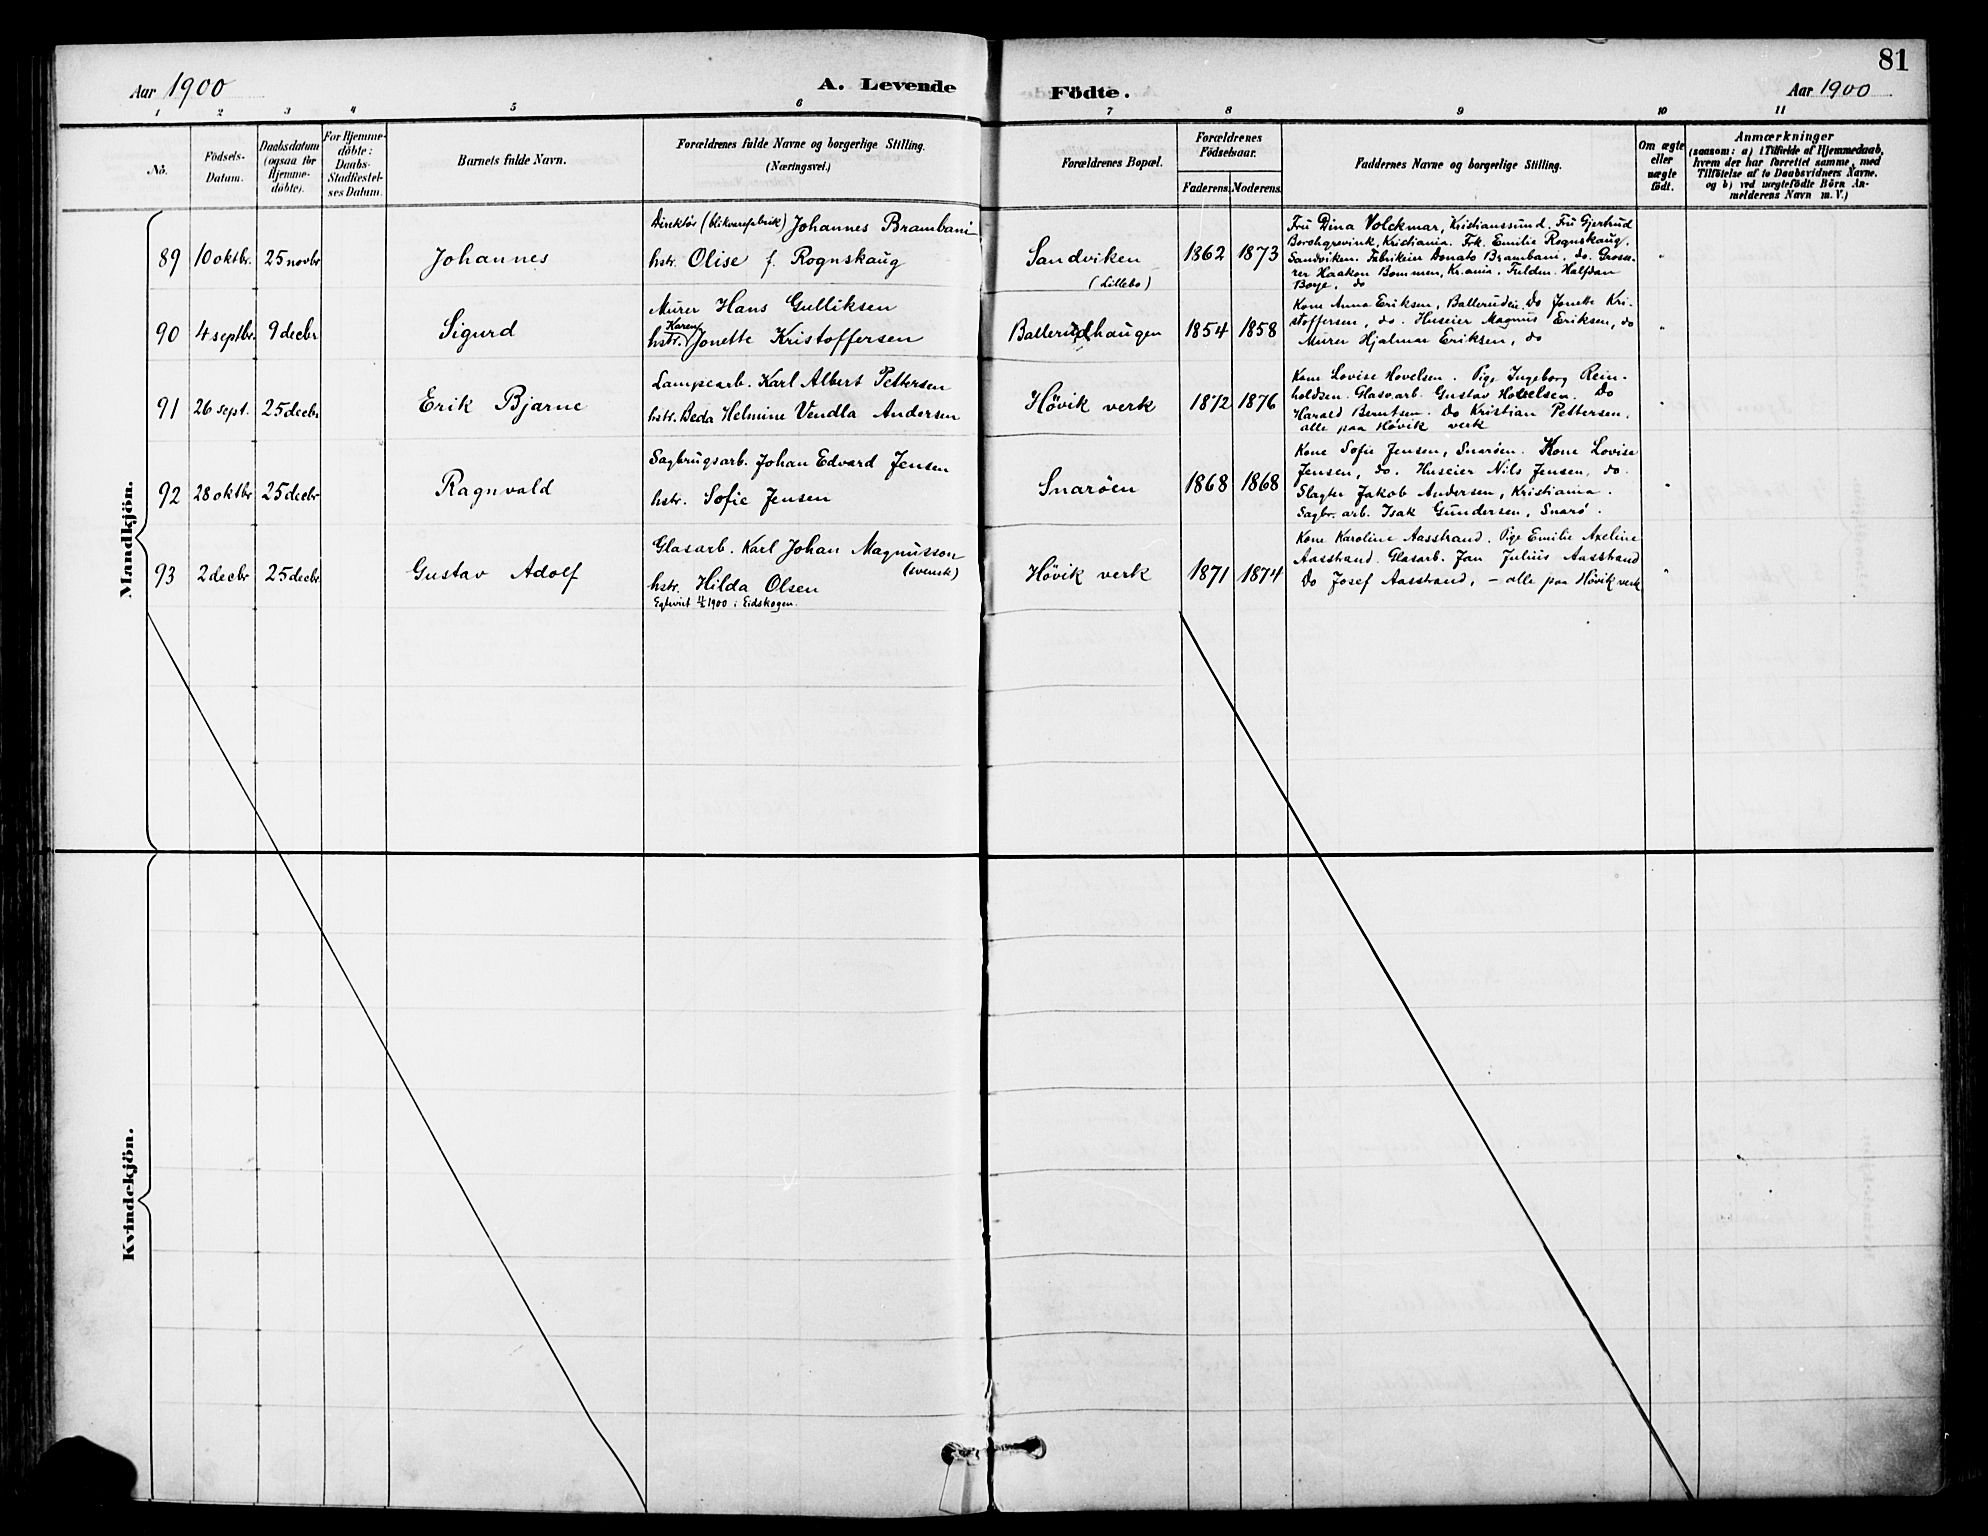 81
Aar 1900
A. Levende Födte.
Aar 1900
1 2 3 4 5 6 7 8 9 10 11
No.
Födsels-Datum.
Daabsdatum (ogsaa for Hjemme-döbte).
For Hjemme-döbte: Daabs-Stadfæstel-ses Datum.
Barnets fulde Navn.
Forældrenes fulde Navne og borgerlige Stilling.
(Næringsvei.)
Forældrenes Bopæl.
Forældrenes Födselsaar.
Faderens. Moderens.
Faddernes Navne og borgerlige Stilling.
Om ægte eller uægte födt.
Anmærkninger
(saasom: a) i Tilfælde af Hjemmedaab,
hvem der har forrettet samme, med
Tilföielse af to Daabsvidners Navne.
og b) ved uægtefödte Börn An-
melderens Navn m. V.)
Mandkjön.
89 10 oktbr. 25 novbr Johannes
Direktör (blikvarefabrik) Johannes Brambani
hstr. Olise f. Rognskaug
Sandviken
(Lillebo)
1862 1873
Fru Dina Volckmar, Kristianssund. Fru Gjertrud
Borchgrevink, Kristiania. Frk. Emilie Rognskaug,
Sandviken. Fabrikeier Donato Brambani, do. Gross-
rer Haakon Bommen, Kr.ania. Fuldm. Halfdan
Boye, do
"
90 4 septbr. 9 decbr Sigurd
Murer Hans Gulliksen
Karen
hstr. Jonette Kristoffersen
Ballerudhaugen
1854 1858
Kone Anna Eriksen, Ballerudeie. Do Jonette Kri-
stoffersen, do. Huseier Magnus Eriksen, do
Murer Hjalmar Eriksen, do
"
91 26 sept. 25 decbr Erik Bjarne
Lampearb. Karl Albert Pettersen
hstr. Beda Helmine Vendla Andersen
Hövik verk
1872 1876
Kone Lovise Hovelsen. Pige Ingeborg Rein-
holdsen. Glasv.arb. Gustav Hovelsen. Do
Harald Berntsen. Do Kristian Pettersen,
alle paa Hövik verk
"
92 28 oktbr 25 decbr Ragnvald
Sagbrugsarb. Johan Edvard Jensen
hstr. Sofie Jensen
Snaröen
1868 1868
Kone Sofie Jensen, Snaröen. Kone Lovise
Jensen, do. Huseier Nils Jensen, do.
Slagter Jakob Andersen, Kristiania.
Sagbr. arb. Isak Gundersen, Snarö.
"
93 2 decbr 25 decbr Gustav Adolf
Glasarb. Karl Johan Magnusson
(svensk)
hstr. Hilda Olsen
1900 i Eidskogen.
Hövik verk
1871 1874
Kone Karoline Aasstrand. Pige Emilie Axeline
Aasstrand. Glasarb. Jan Julius Aasstrand
Do Josef Aasstrand, - alle paa Hövik verk
"
Kvindekjön.